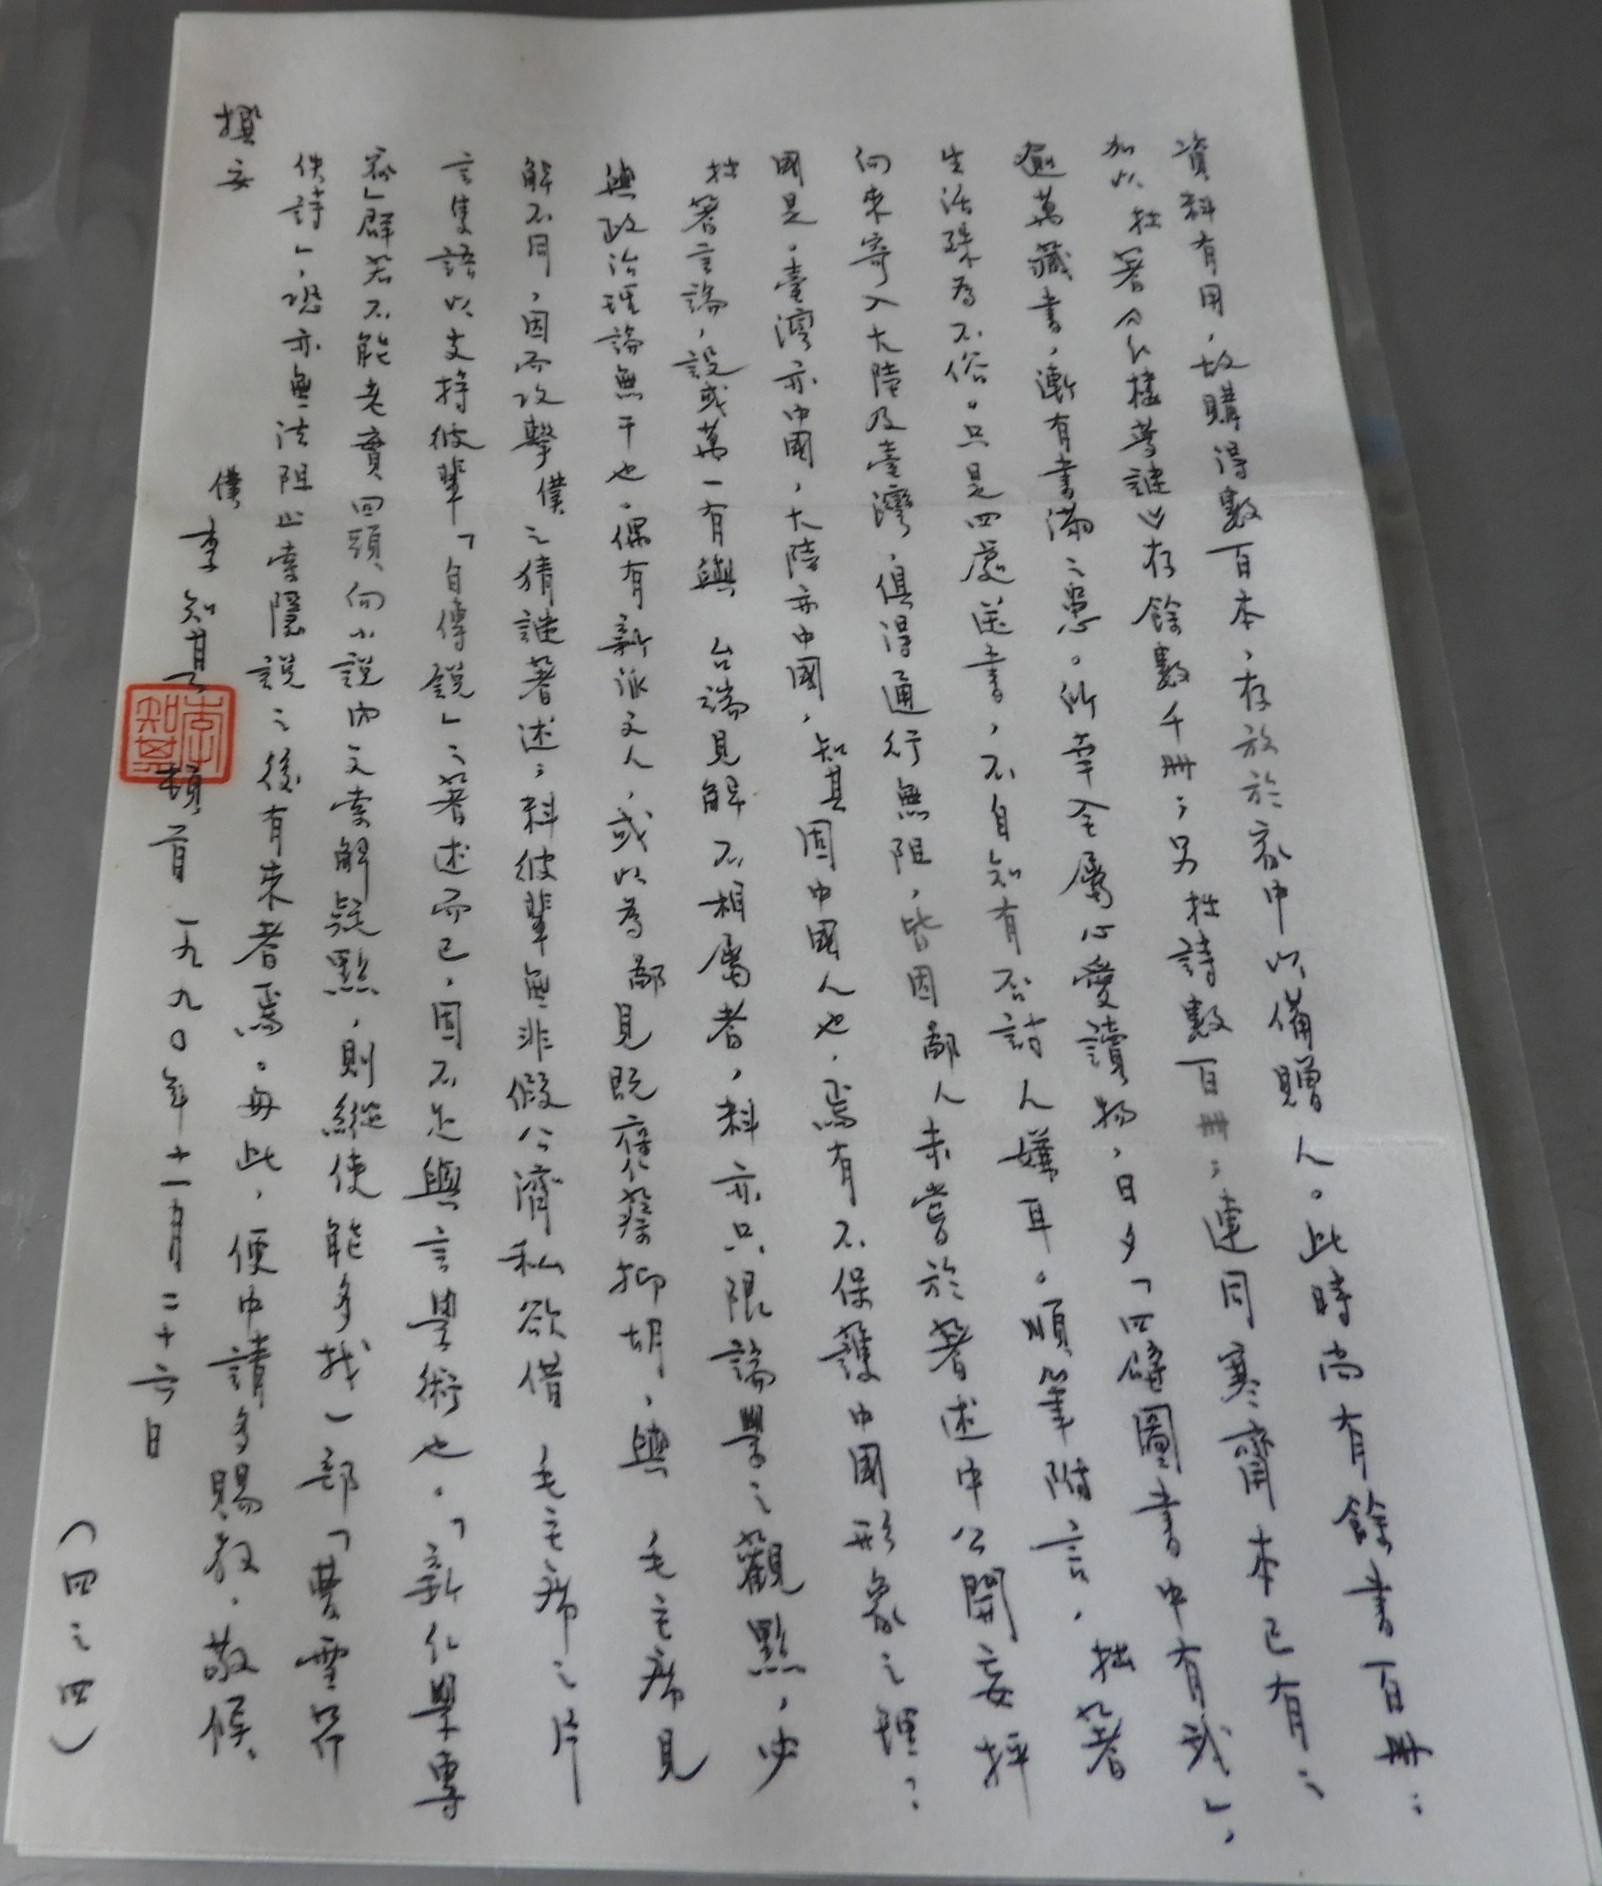 資料有用，故購得數百本，存放於家中以備贈人。此時尚有餘書百冊；
加以 拙著《紅樓夢謎》存餘數千冊；另 拙詩數百冊；連同寒齋本已有之
逾萬藏書，漸有書滿之患。所幸全屬心愛讀物，日夕「四壁圖書中有我」，
生活殊為不俗。只是四處送書，不自知有否討人嫌耳。順筆附言，拙著
向來寄入大陸及臺灣，俱得通行無阻，皆因鄙人未嘗於著述中公開妄抨
國是。臺灣亦中國，大陸亦中國，知其固中國人也，焉有不保護中國形象之理？
拙著言論，設或萬一有與 台端見解不相屬者，料亦只限論學之觀點，少
與政治理論無干也。偶有新派文人，或以為鄙見既舊蔡抑胡，與 毛主席見
解不同，因而攻擊 僕之猜謎著述；料彼輩無非假公濟私欲借 毛主席之片
言隻語以支持彼輩「自傳說」之著述而已，固不足與言學術也。「新紅學專
家」群若不能老實回頭，向小說內文索解疑點，則縱使能多找一部「曹雪芹
佚詩」，恐亦無法阻止索隱說之後有來者焉。毋此，便中請多賜教。敬候
撰安
僕 李知其 頓首 一九九〇年十一月二十六日
李知其
（四之四）